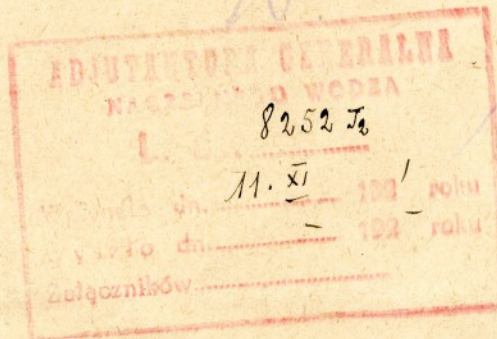 ADJUTANTURA GENERALNA
NACZELNEGO WODZA
L. 8252
Wpłynęło dn. 11. XI 1921 roku
Wyszło dn. – 192 – roku
Załączników